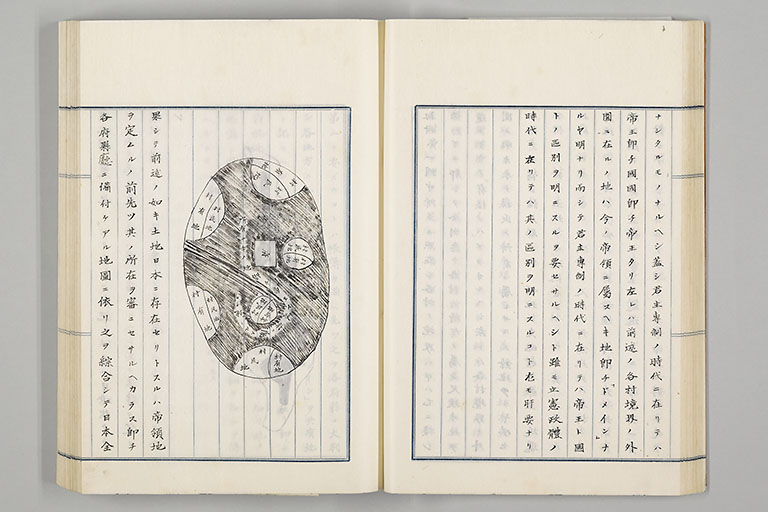 ナシタルモノナルヘシ蓋シ君主専制ノ時代ニ在リテハ
帝王即チ國國即チ帝王タリ左レハ前述ノ各村境界ノ外
圍ニ在ルノ地ハ今ノ帝領ニ屬スヘキ地即チ「ドメイン」ナ
ルヤ明ナリ而シテ君主専制ノ時代ニ在リテハ帝王ト國
トノ区別ヲ明ニスルヲ要セサルヘシト雖モ立憲政體ノ
時代ニ在リテハ其ノ区別ヲ明ニスルコト尤モ肝要ナリ
村有地
村民地
村有地
村民地
市
村有地
村民地
村有地
村民地
村民地
村有地
果シテ前述ノ如キ土地日本ニ存在セリトスルハ帝領地
ヲ定ムルノ前先ツ其ノ所在ヲ審ニセサルヘカラス即チ
各府縣廳ニ備付ケアル地圖ニ依リ之ヲ綜合シテ日本全